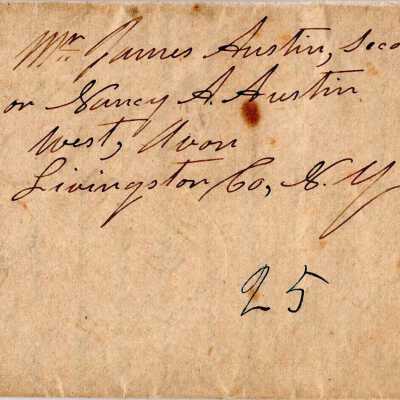 Mr. James Austin, Seco
or Nancy A. Austin
West, Avon
Livingston Co, N. Y
25